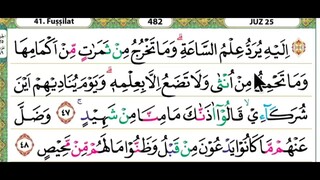 41. Fuṣṣilat 482 JUZ 25
اِلَيْهِ يُرَدُّ عِلْمُ السَّاعَةِ ۗوَمَا تَخْرُجُ مِنْ ثَمَرٰتٍ مِّنْ اَكْمَامِهَا
وَمَا تَحْمِلُ مِنْ اُنْثٰى وَلَا تَضَعُ اِلَّا بِعِلْمِهٖ ۗوَيَوْمَ يُنَادِيْهِمْ اَيْنَ
شُرَكَاۤءِيْۙ قَالُوْٓا اٰذَنّٰكَ مَا مِنَّا مِنْ شَهِيْدٍۚ ٤٧ وَضَلَّ
عَنْهُمْ مَّا كَانُوْا يَدْعُوْنَ مِنْ قَبْلُ وَظَنُّوْا مَا لَهُمْ مِّنْ مَّحِيْصٍ ٤٨